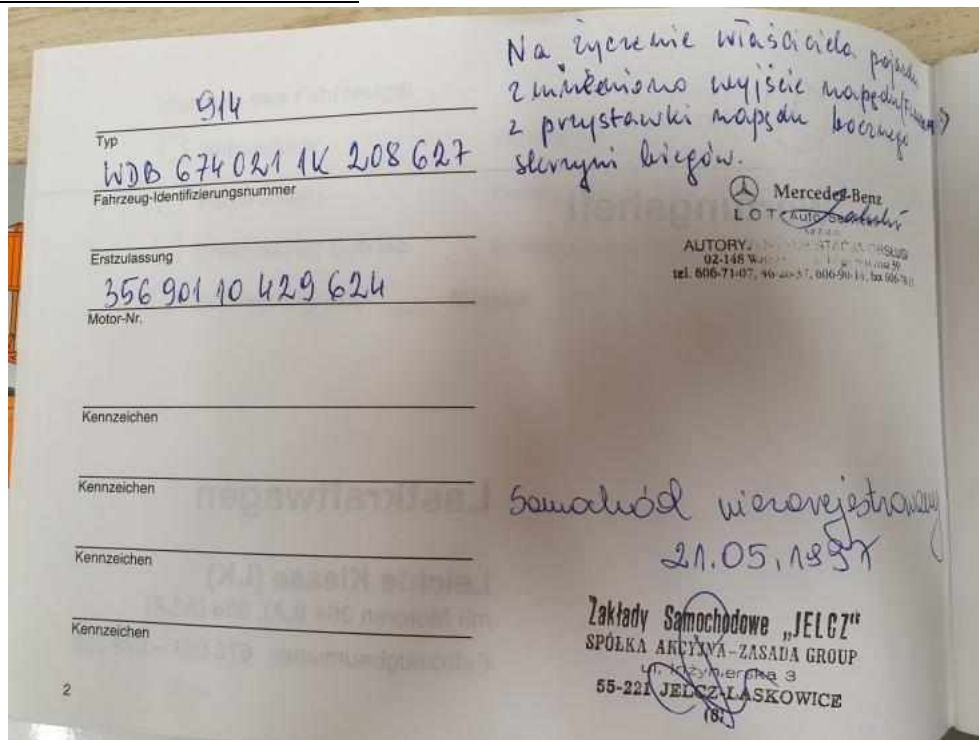 914
Typ
WDB 674 021 1K 208 627
Fahrzeug-Identifizierungsnummer
Erstzulassung
356 901 10 429 624
Motor-Nr.
Kennzeichen
Kennzeichen
Kennzeichen
Kennzeichen
2
Na życzenie właściciela pojazdu
zmieniono wyjście napędu
z przystawki napędu bocznego
skrzyni biegów.
Mercedes-Benz
LOT Auto
02-148
tel. 606-71-07,
Samochód niezarejestrowany
21.05.1997
Zakłady Samochodowe „JELCZ"
SPÓŁKA AKCYJNA-ZASADA GROUP
ul. Inżynierska 3
55-221 JELCZ-LASKOWICE
Lastkraftwagen
Leichte Klasse (LK)